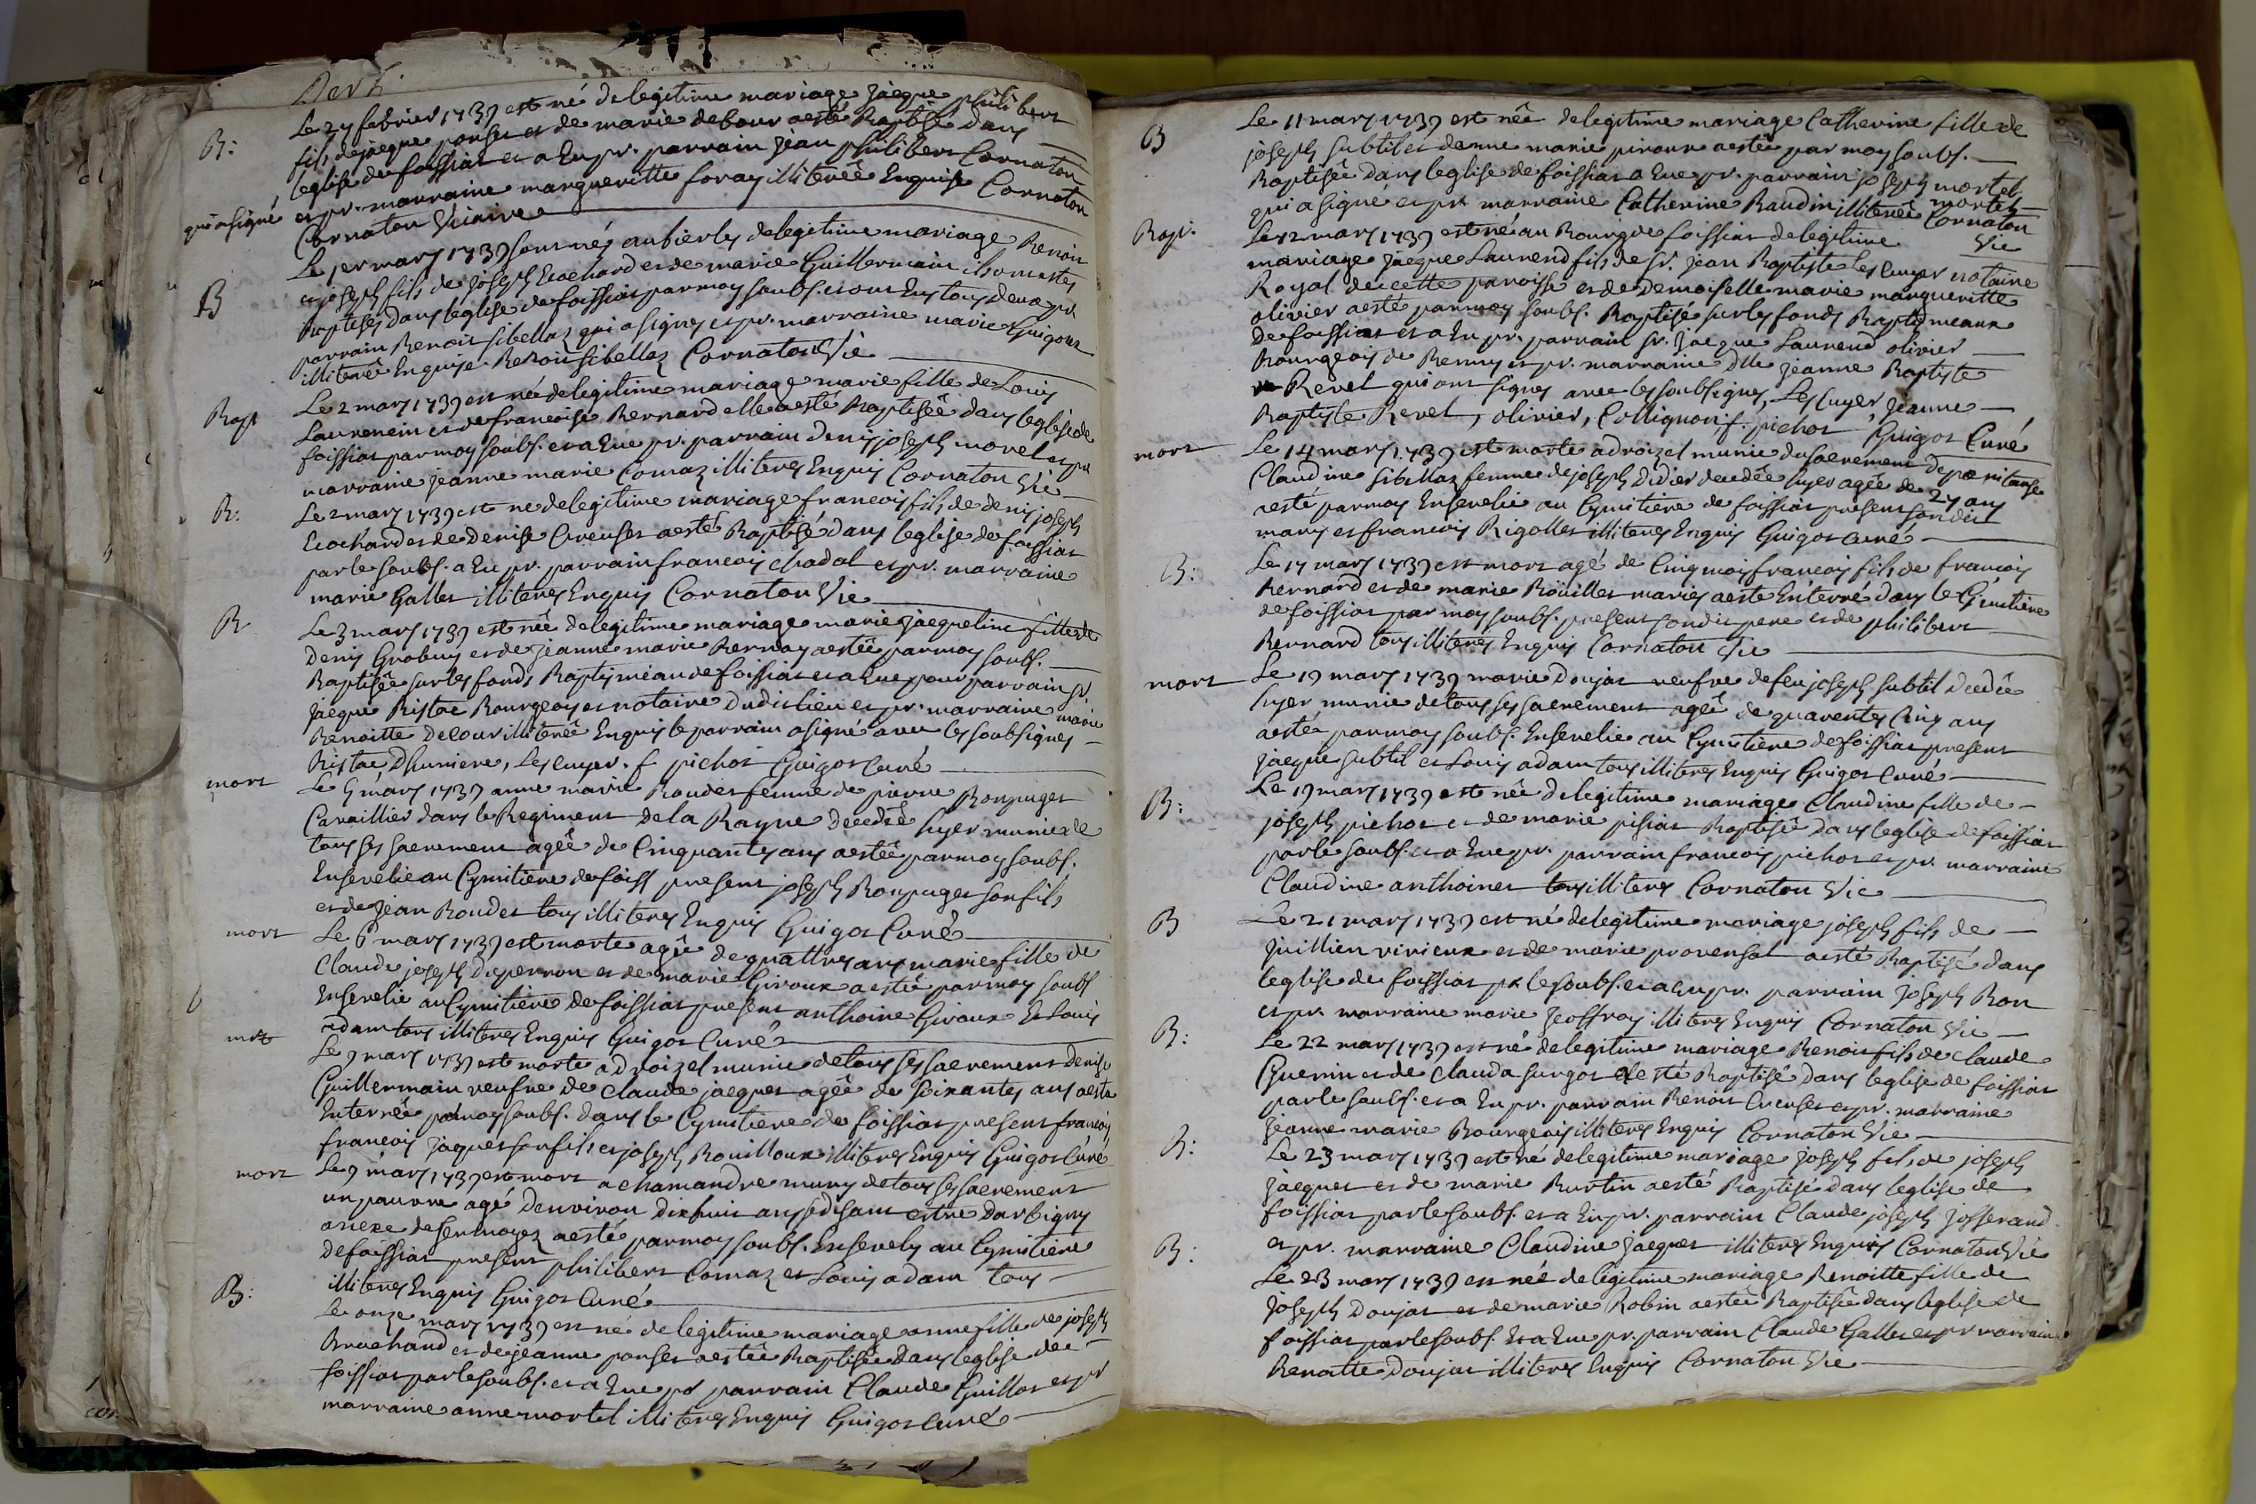 B:
Le 27 febvrier 1739 est né de legitime mariage jacque philibert
fils de jacque ponset et de marie debour a esté Baptisé dans
leglise de foissiat et a Eu pr. parrain jean philibert Cornaton
qui a signé et pr. marraine margueritte foray illiterée Enquise Cornaton
Cornaton Vicaire
B
Le 1er mars 1739 sont nés aubierly de legitime mariage Benoit
et joseph fils de joseph Ecochard et de marie Guillermain ils ont estés
Baptisés dans leglise de foissiat par moy soubs. et ont Eus tous deux pr.
parrain Benoit sibellaz qui a signés et pr. marraine marie Guigout
illiterée Enquise. Benoit sibellaz Cornaton Vic
Bapt
Le 2 mars 1739 est né de legitime mariage marie fille de Louis
Laurencin et de francoise Bernard elle a esté Baptisée dans leglise de
foissiat par moy soubs. et a Eue pr. parrain denis joseph morel et pr
marraine jeanne marie Comaz illiteres Enquis Cornaton Vic
B:
Le 2 mars 1739 est né de legitime mariage francois fils de denis joseph
Ecochard et de denise Creuset a esté Baptisé dans leglise de foissiat
par le soubs. a Eu pr. parrain francois chadal et pr. marraine
marie Gallet illiteres Enquis Cornaton Vic
B
Le 3 mars 1739 est née de legitime mariage marie jacqueline fille de
Denis Grobuy et de jeanne marie Bernay a estée par moy soubs.
Baptisée sur les fonds Baptismeau de foissiat et a Eue pour parrain sr.
jacque Ristac Bourgeois et notaire dudit lieu et pr. marraine marie
Benoitte Decour illiterée Enquis le parrain a signé avec les soubsignes
Ristac, Dhumiere, Lescuyer. f pichot Guigot Curé
mort
Le 5 mars 1739 anne marie Boudet femme de pierre Bonpuget
Cavaillier dans le Regiment de la Rayne decedée hyer munie de
tous ses sacrement agée de Cinquantes ans a estée par moy soubs.
Ensevelie au Cymitiere de foiss present joseph Bonpuget son fils
et de jean Boudet tous illiteres Enquis Guigot Curé
mort
Le 6 mars 1739 est morte agée de quattres ans marie fille de
Claude joseph Duperron et de marie Giroux a estée par moy soubs
Ensevelie au Cymitiere de foissiat present anthoine Giroux Et Louis
adam tous illiteres Enquis Guigot Curé
mort
Le 9 mars 1739 est morte a droizel munie de tous ses sacrement denise
Guillermain veufve de Claude jacquet agée de soixantes ans a esté
Enterrée par moy soubs. dans le Cymitiere de foissiat present francois
francois jaquet son fils et joseph Bouilloux illiteres Enquis Guigot Curé
mort
Le 9 mars 1739 est mort a chamandre muny de tous ses sacrement
un pauvre agé d'environ dix huit ans se disant estre Darbigny
anexe de sermoyez a esté par moy soubs. Ensevely au Cymitiere
de foissiat present philibert Comaz et Louis adam tous
illiteres Enquis Guigot Curé
B:
Le onze mars 1739 est né de legitime mariage anne fille de joseph
Brochand et de jeanne ponset a estée Baptisée dans leglise de
foissiat par le soubs. et a Eue pr parrain Claude Guillot et pr
marraine anne mortel illiteres Enquis Guigot Curé
B
Le 11 mars 1739 est née de legitime mariage Catherine fille de
joseph subtil et d'enne marie piroux a estée par moy soubs.
Baptisée dans leglise de foissiat a Eue pr. parrain joseph mortel
qui a signé et pr. marraine Catherine Baudin illiterée mortel Cornaton
Vic
Bapt.
Le 12 mars 1739 est né au Bourg de foissiat de legitime
mariage jacque Laurend fils de sr. jean Baptiste Lescuyer notaire
Royal de cette paroisse et de Demoiselle marie margueritte
olivier a esté par moy soubs. Baptisé sur les fonds Baptismeaux
de foissiat et a Eu pr. parrain sr. jacque Laurend olivier
Bourgeois de Benny et pr. marraine dlle jeanne Baptiste
Revel qui ont signes avec les soubsignes, Lescuyer, jeanne
Baptiste Revel, olivier, Collignon f. pichot Guigot Curé
mort
Le 14 mars 1739 est morte a droizel munie du sacrement de poenitanse
Claudine sibellaz femme de joseph Didier decedée hyer agée de 27 ans
a esté par moy Ensevelie au Cymitiere de foissiat present son dit
marys et francois Rigollet illiteres Enquis Guigot Curé
B:
Le 17 mars 1739 est mort agé de Cinq mois francois fils de francois
Bernard et de marie Boüillet maries a esté Enterré dans le Cimitiere
de foissiat par moy soubs. present son dit pere et de philibert
Bernard tous illiteres Enquis Cornaton Vic
mort
Le 19 mars 1739 marie Doujat veufve de feu joseph subtil decedée
hyer munie de tous ses sacrement agée de quarentes Cinq ans
a estée par moy soubs. Ensevelie au Cymitiere de foissiat present
jacque subtil et Louis adam tous illiteres Enquis Guigot Curé
B:
Le 19 mars 1739 est née de legitime mariage Claudine fille de
joseph pichot et de marie pisiat Baptisée dans leglise de foissiat
par le soubs. et a Eue pr. parrain francois pichot et pr. marraine
Claudine anthoinet tous illiteres Cornaton Vic
B
Le 21 mars 1739 est né de legitime mariage joseph fils de
juillien virieux et de marie provensal a esté Baptisé dans
leglise de foissiat pr le soubs. et a Eu pr. parrain joseph Bon
et pr. marraine marie jeoffray illiteres Enquis Cornaton Vic
B:
Le 22 mars 1739 est né de legitime mariage Benoit fils de Claude
Guerin et de Clauda surgot a esté Baptisé dans leglise de foissiat
par le soubs. et a Eu pr. parrain Benoit Creuset et pr. marraine
jeanne marie Bourgeois illiteres Enquis Cornaton Vic
B:
Le 23 mars 1739 est né de legitime mariage joseph fils de joseph
jacquet et de marie Burtin a esté Baptisé dans leglise de
foissiat par le soubs. et a Eu pr. parrain Claude joseph josserand
et pr. marraine Claudine jacquet illiteres Enquis Cornaton Vic
B:
Le 23 mars 1739 est née de legitime mariage Benoitte fille de
joseph Doujat et de marie Robin a estée Baptisée dans leglise de
foissiat par le soubs. Et a Eue pr. parrain Claude Gallet et pr marraine
Benoitte Doujat illiteres Enquis Cornaton Vic